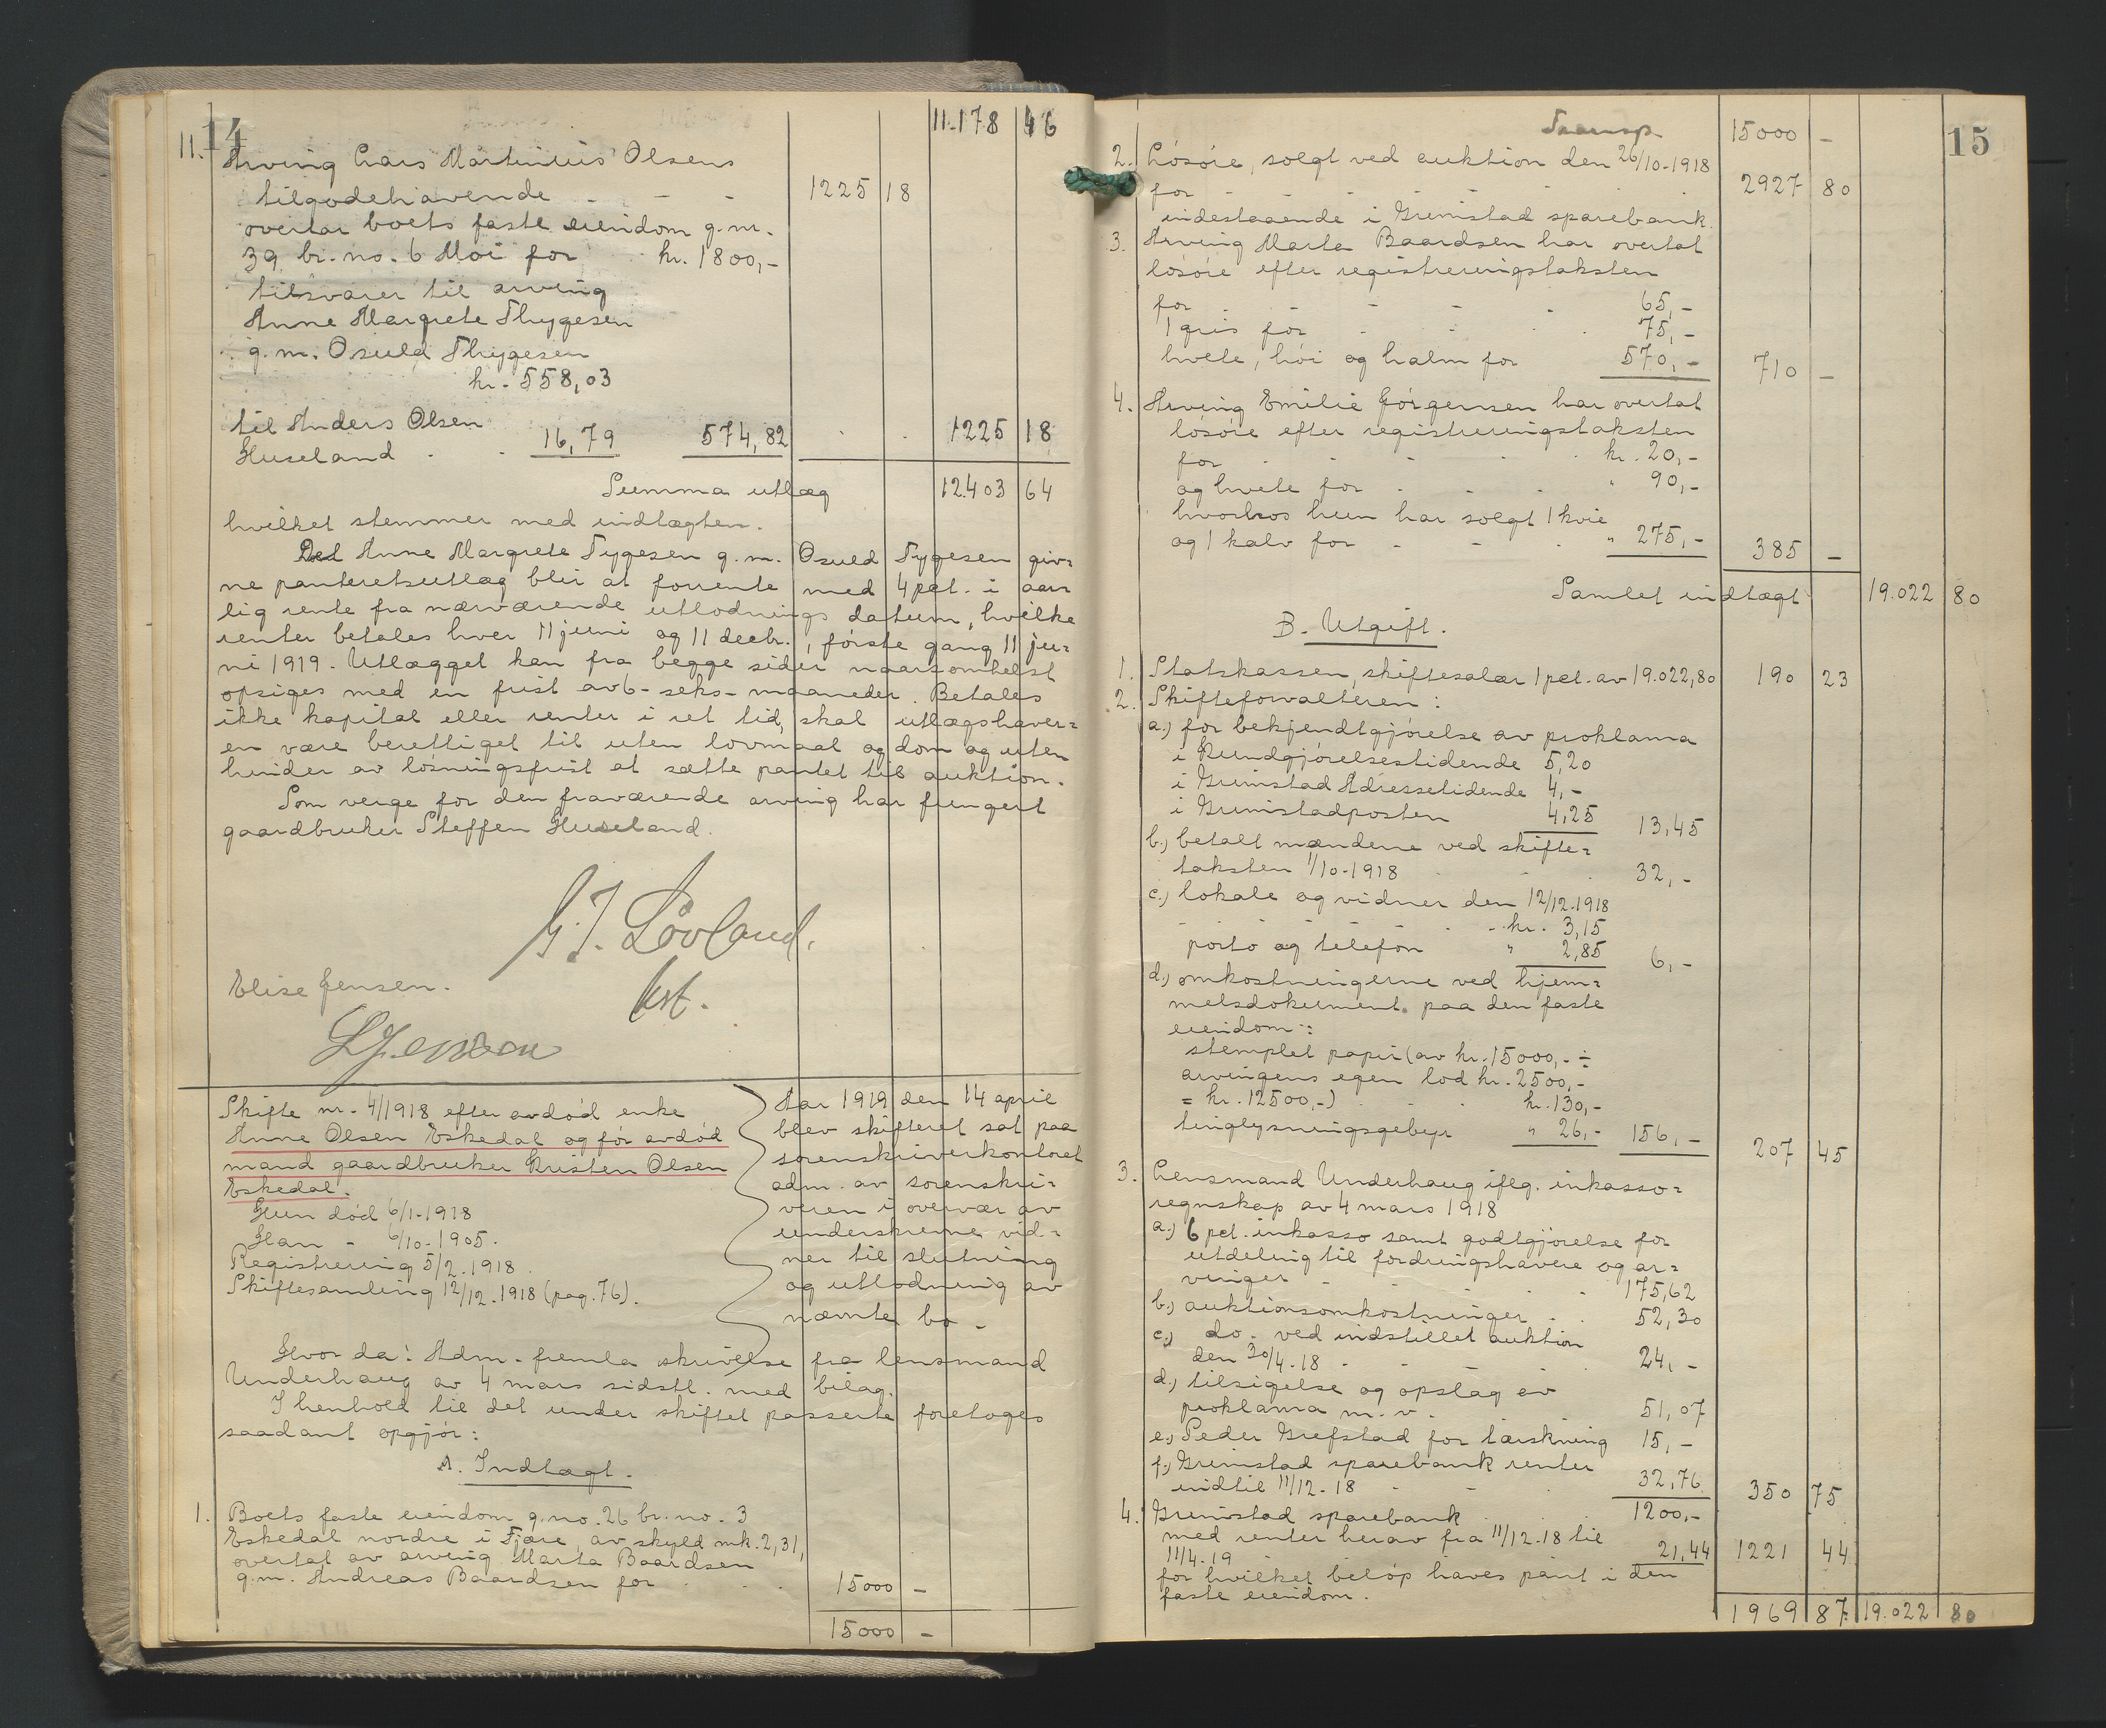 14
11.178 46
11. Arving Lars Martinius Olsens
tilgodehavende - - - 1225 18
overtar boets faste eiendom g.nr.
39 br. no. 6 Moi for kr. 1800,-
tilsvarer til arving
Anne Margrete Thygesen
g.m. Osuld Thygesen
kr. 558,03
til Anders Olsen
Huseland . . 16,79 574,82 . . 1225 18
Summa utlæg 12.403 64
hvilket stemmer med indtægten.
Det Anne Margrete Tygesen g.m. Osuld Tygesen giv=
ne panteretsutlæg blir at forrente med 4 pct. i aar=
lig rente fra nærværende utlodnings datum, hvilke
renter betales hver 11 juni og 11 decbr., første gang 11 ju=
ni 1919. Utlægget kan fra begge sider naarsomhelst
opsiges med en frist av 6 - seks - maaneder. Betales
ikke kapital eller renter i ret tid, skal utlægshaver=
en være berettiget til uten lovmaal og dom og uten
hinder av løsningsfrist at sætte pantet til auktion.
Som verge for den fraværende arving har fungert
gaardbruker Steffen Huseland.
G. T. Løvland.
kst.
Elise Jensen.
L Jensen
Skifte nr. 4/1918 efter avdød enke
Anne Olsen Eskedal og før avdød
mand gaardbruker Kristen Olsen
Eskedal.
Hun død 6/1-1918
Han - 6/10-1905.
Registrering 5/2.1918.
Skiftesamling 12/12.1918 (pag. 76).
Aar 1919 den 14 april
blev skifteret sat paa
sorenskriverkontoret
adm. av sorenskri=
veren i overvær av
underskrevne vid=
ner til slutning
og utlodning av
nævnte bo -
Hvor da: Adm. fremla skrivelse fra lensmand
Underhaug av 4 mars sidstl. med bilag.
I henhold til det under skiftet passerte foretages
saadant opgjør:
A. Indtægt.
1. Boets faste eiendom g.no. 26 br. no. 3
Eskedal nordre i Fjære, av skyld mk. 2,31,
overtat av arving Marta Baardsen
g.m. Andreas Baardsen for . . . 15000 -
15000 -
15
Transp. 15000 -
2. Løsøre, solgt ved auktion den 26/10-1918
for - - - - . . . 2927 80
indestaaende i Grimstad sparebank.
3. Arving Marta Baardsen har overtat
løsøre efter registreringstaksten
for . - - - . 65,-
1 gris for . - . . 75,-
hvete, høi og halm for 570,- 710 -
4. Arving Emilie Jørgensen har overtat
løsøre efter registreringstaksten
for . - - . kr. 20,-
og hvete for . - . " 90,-
hvorhos hun har solgt 1 kvie
og 1 kalv for - - . " 275,- 385 -
Samlet indtægt 19.022 80
B. Utgift.
1. Statskassen, skiftesalær 1 pct. av 19.022,80 190 23
2. Skifteforvalteren:
a.) for bekjendtgjørelse av proklama
i Kundgjørelsestidende 5,20
i Grimstad Adressetidende 4,-
i Grimstadposten 4,25 13,45
b.) betalt mændene ved skifte=
taksten 1/10-1918 . . 32,-
c.) lokale og vidner den 12/12.1918
- - - - . - kr. 3,15
porto og telefon " 2,85 6,-
d.) omkostningerne ved hjem=
melsdokument. paa den faste
eiendom:
stemplet papir (av kr. 15000,- ÷
arvingens egen lod kr. 2500,-
= kr. 12500,-) . . . kr. 130,-
tinglysningsgebyr " 26,- 156,- 207 45
3. Lensmand Underhaug iflg. inkasso=
regnskap av 4 mars 1918
a.) 6 pct. inkasso samt godtgjørelse for
utdeling til fordringshavere og ar=
vinger - - . . 175,62
b.) auktionsomkostninger . . 52,30
c.) do. ved indstillet auktion
den 30/4-18 . - - . 24,-
d.) tilsigelse og opslag av
proklama m.v. . . . 51,07
e.) Peder Grefstad for tærskning 15,-
f.) Grimstad sparebank renter
indtil 11/12-18 - - . 32,76 350 75
4. Grimstad sparebank . . 1200,-
med renter herav fra 11/12.18 til
11/4.19 21,44 1221 44
for hvilket beløp haves pant i den
faste eiendom.
1969 87 19.022 80